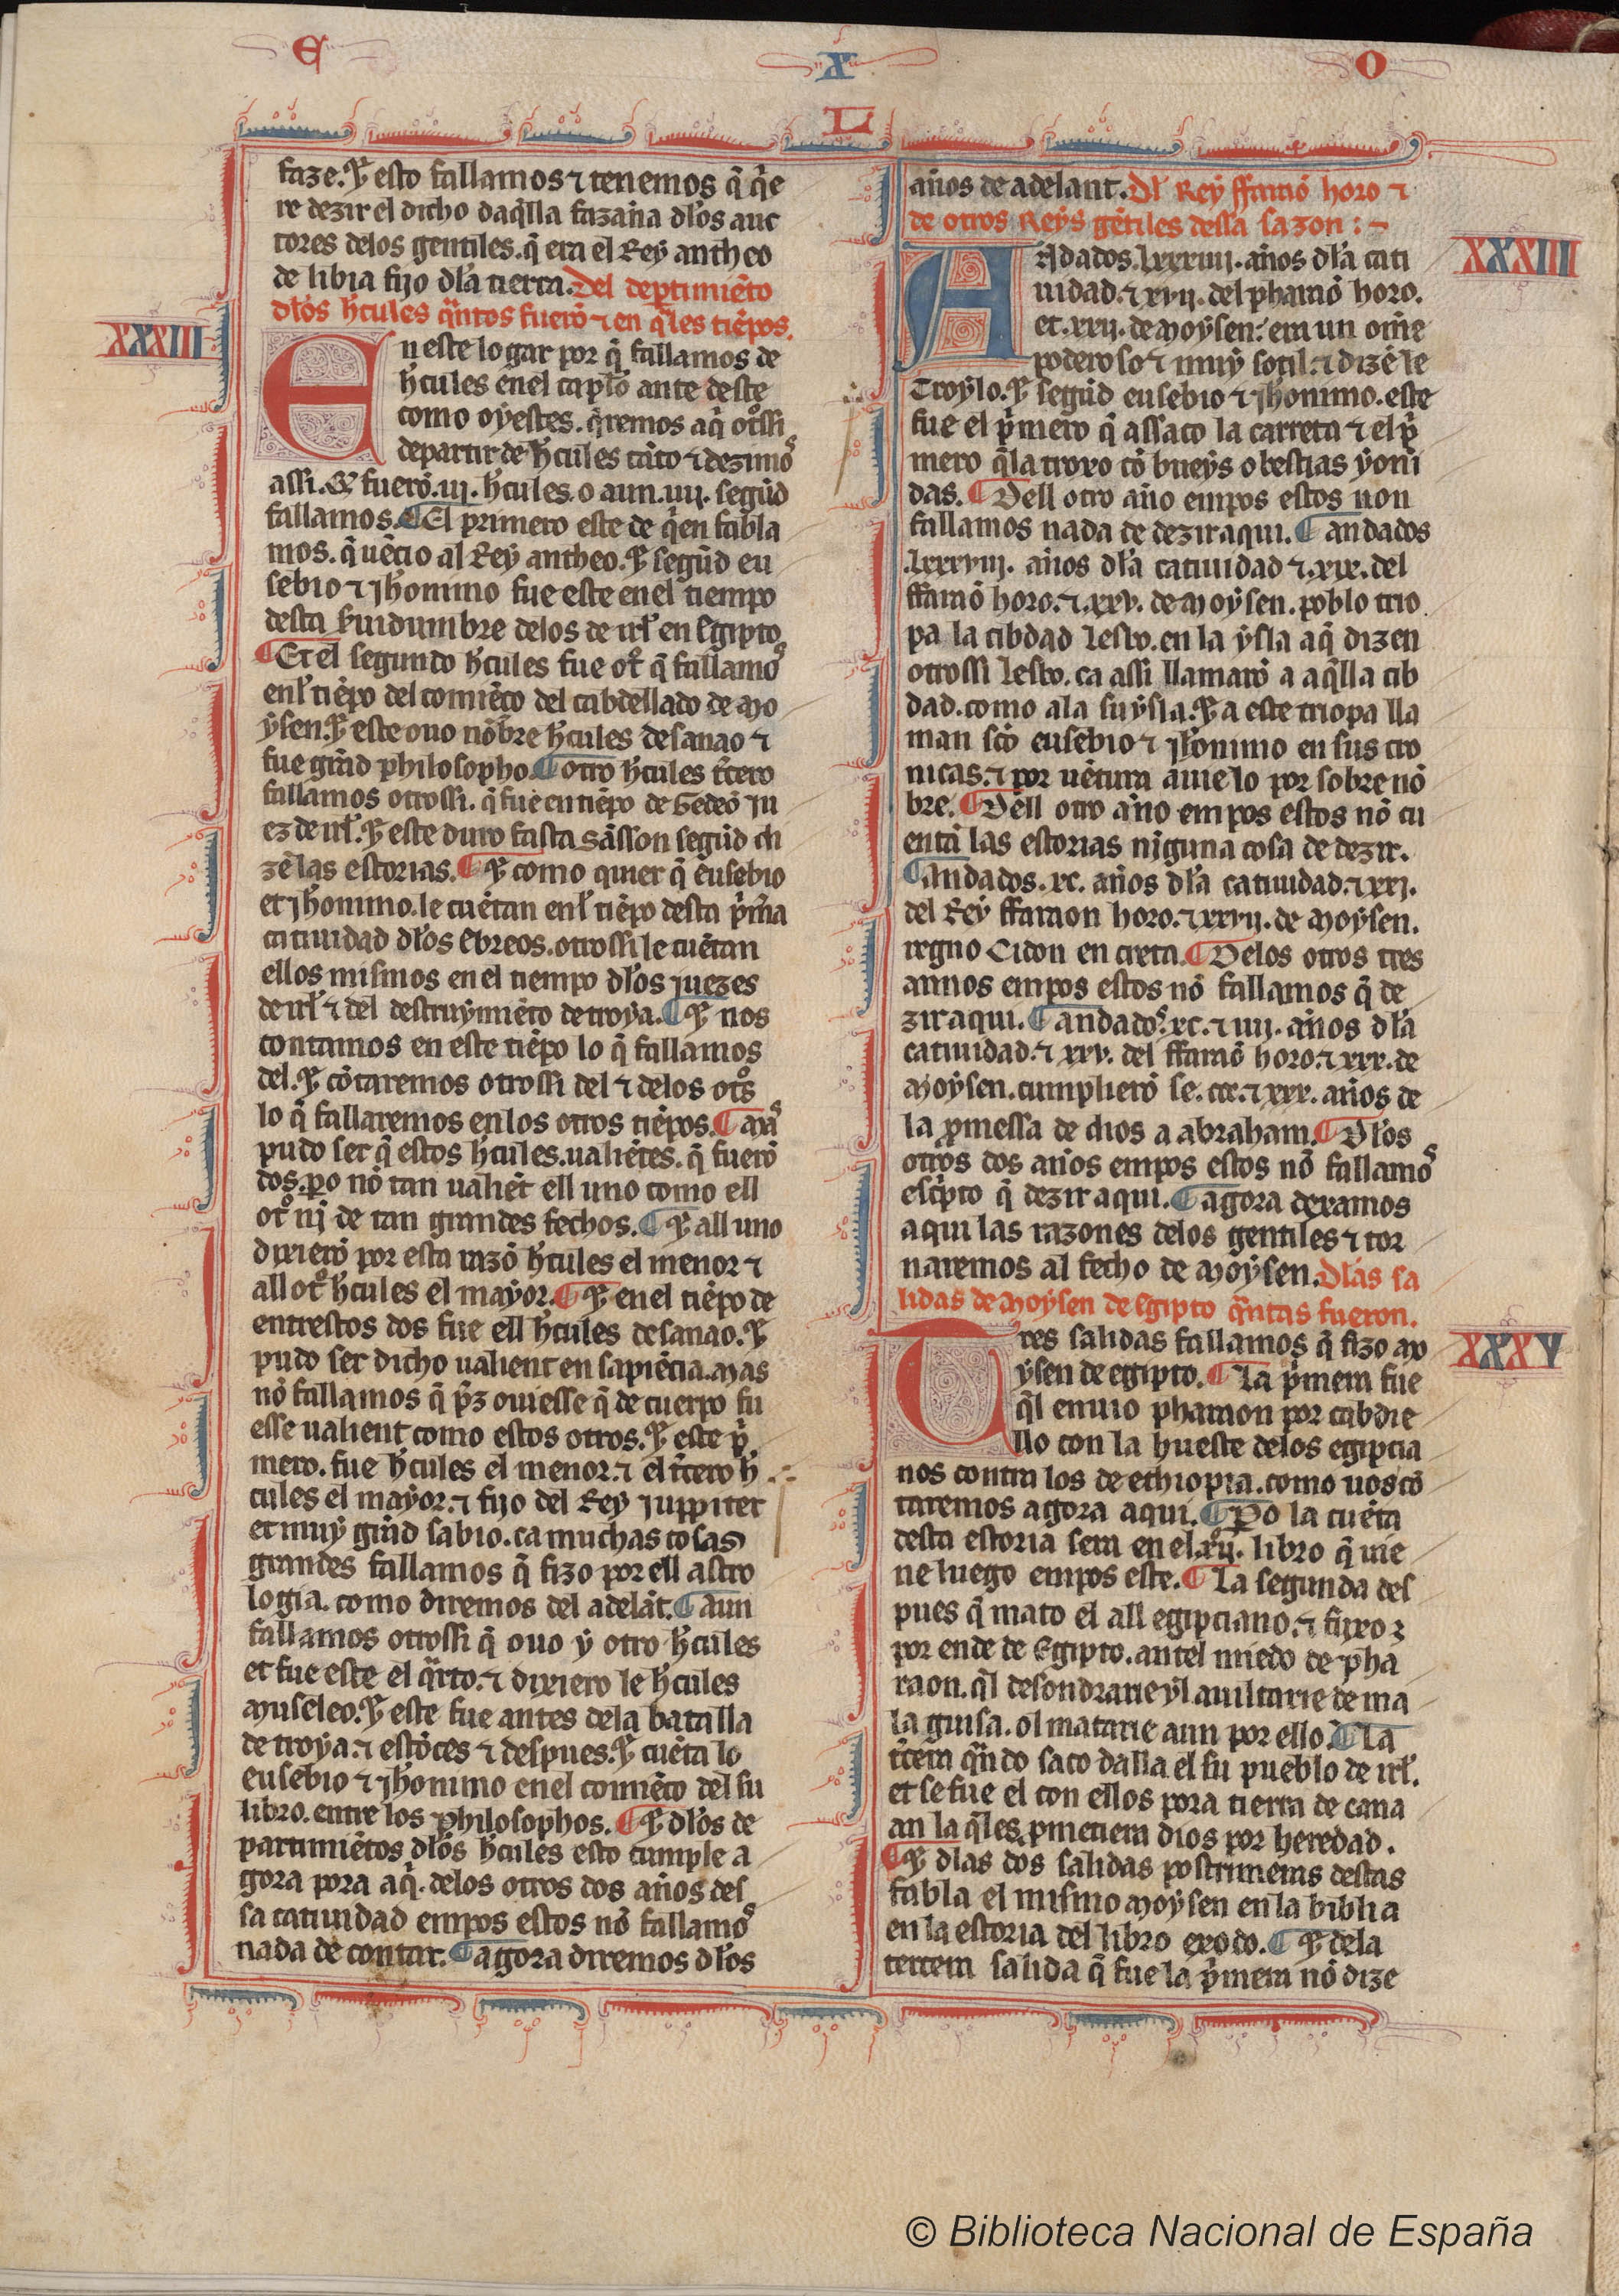 E X O
L
faze. ⁊ esto fallamos ⁊ tenemos q̃ q̃e
re dezir el dicho daq̃lla fazaña dl̃os auc
tores delos gentiles. q̃ era el Rey antheo
de libia fijo dl̃a tierra. Del dep̃timiẽto
dl̃os h̃cules q̃ntos fuerõ ⁊ en q̃les tiẽpos.
XXXIII
En este logar por q̃ fallamos de
h̃cules enel cap̃lo ante deste
como oyestes. q̃remos aq̃ ot̃ssi
departir de h̃cules tãto ⁊ dezimos
assi. Q̃ fuerõ .iij. h̃cules. o aun .iiij. segũd
fallamos. ¶ El primero este de q̃en fabla
mos. q̃ uẽcio al Rey antheo. ⁊ segũd eu
sebio ⁊ jh̃onimo fue este enel tiempo
desta s̃uidumbre delos de irl̃ en Egipto
¶ Et el segundo h̃cules fue ot̃ q̃ fallamos
enl̃ tiẽpo del comiẽço del cabdellado de mo
ysen. ⁊ este ouo nõbre h̃cules desanao ⁊
fue grãd philosopho. ¶ otro h̃cules t̃cero
fallamos otrossi. q̃ fue en tiẽpo de Gedeõ ju
ez de irl̃. ⁊ este duro fasta sãsson segũd di
zẽ las estorias. ¶ ⁊ como quier q̃ eusebio
et jh̃onimo. le cuẽtan enl̃ tiẽpo desta p̃m̃a
catiuidad dl̃os ebreos. otrossi le cuẽtan
ellos mismos en el tiempo dl̃os juezes
de irl̃ ⁊ del destruymiẽto de troya. ¶ ⁊ nos
contamos en este tiẽpo lo q̃ fallamos
del. ⁊ cõtaremos otrossi del ⁊ delos ot̃s
lo q̃ fallaremos enlos otros tiẽpos. ¶ mas
pudo ser q̃ estos h̃cules. ualiẽtes. q̃ fuerõ
dos. p̃o nõ tan ualiẽt ell uno como ell
ot̃ nj de tan grandes fechos. ¶ ⁊ all uno
dixierõ por esta razõ h̃cules el menor ⁊
all ot̃ h̃cules el mayor. ¶ ⁊ en el tiẽpo de
entrestos dos fue ell h̃cules desanao. ⁊
pudo ser dicho ualient en sapiẽcia. mas
nõ fallamos q̃ p̃z ouiesse q̃ de cuerpo fu
esse ualient como estos otros. ⁊ este p̃
mero. fue h̃cules el menor. ⁊ el t̃cero h̃
cules el mayor. ⁊ fijo del Rey juppiter
et muy grãd sabio. ca muchas cosas
grandes fallamos q̃ fizo por ell astro
logia. como diremos del adelãt. ¶ aun
fallamos otrossi q̃ ouo y otro h̃cules
et fue este el q̃rto. ⁊ dixiero le h̃cules
museleo. ⁊ este fue antes dela batalla
de troya. ⁊ estõces ⁊ despues. ⁊ cuẽta lo
eusebio ⁊ jh̃onimo en el comiẽço del su
libro. entre los philosophos. ¶ ⁊ dl̃os de
partimiẽtos dl̃os h̃cules esto cumple a
gora pora aq̃. delos otros dos años des
sa catiuidad empos estos nõ fallamos
nada de contar. ¶ agora diremos dl̃os
años de adelant. Dl̃ Rey ffaraõ horo ⁊
de otros Reys gẽtiles dessa sazon : ~
XXXIIII
Andados .lxxxiiij. años dl̃a cati
uidad. ⁊ xvij. del pharaõ horo.
et .xxij. de moysen: era un om̃e
poderoso ⁊ muy sotil. ⁊ dizẽ le
Troylo. ⁊ segũd eusebio ⁊ jh̃onimo. este
fue el p̃mero q̃ assaco la carreta ⁊ el p̃
mero q̃la troxo cõ bueys o bestias yoni
das. ¶ Dell otro año empos estos non
fallamos nada de dezir aqui. ¶ andados
.lxxxviij. años dl̃a catiuidad ⁊ .xix. del
ffaraõ horo. ⁊ .xxv. de moysen. poblo trio
pa la cibdad lesbo. en la ysla aq̃ dizen
otrossi lesbo. ca assi llamarõ a aq̃lla cib
dad. como ala su ysla. ⁊ a este triopa lla
man sc̃o eusebio ⁊ jh̃onimo en sus cro
nicas. ⁊ por uẽtura auie lo por sobre nõ
bre. ¶ Dell otro año empos estos nõ cu
entã las estorias njguna cosa de dezir.
¶ Andados .xc. años dl̃a catiuidad. ⁊ xxj.
del Rey ffaraon horo. ⁊ xxvij. de moysen.
regno Cidon en creta. ¶ Delos otros tres
annos empos estos nõ fallamos q̃ de
zir aqui. ¶ andados .xc. ⁊ iiij. años dl̃a
catiuidad. ⁊ xxv. del ffaraõ horo. ⁊ xxx. de
moysen. cumplierõ se .ccc. ⁊ xxx. años de
la p̃messa de dios a abraham. ¶ Dl̃os
otros dos años empos estos nõ fallamos
esc̃pto q̃ dezir aqui. ¶ agora dexamos
aqui las razones delos gentiles ⁊ tor
naremos al fecho de moysen. Dl̃as sa
lidas de moysen de Egipto q̃ntas fueron.
XXXV
Tres salidas fallamos q̃ fizo mo
ysen de egipto. ¶ La p̃mera fue
q̃l enuio pharaon por cabdie
llo con la hueste delos egipcia
nos contra los de ethiopia. como uos cõ
taremos agora aqui. ¶ P̃o la cuẽta
desta estoria sera en el .xij. libro q̃ uie
ne luego empos este. ¶ La segunda des
pues q̃ mato el all egipciano. ⁊ fuxo
por ende de Egipto. antel miedo de pha
raon. q̃l desondrarie yl auiltarie de ma
la guisa. ol matarie aun por ello. ¶ La
t̃cera q̃ndo saco dalla el su pueblo de irl̃.
et se fue el con ellos pora tierra de cana
an la q̃ les p̃metiera dios por heredad.
¶ ⁊ dlas dos salidas postrimeras destas
fabla el mismo moysen en la biblia
en la estoria del libro exodo. ¶ ⁊ dela
tercera salida q̃ fue la p̃mera nõ dize
© Biblioteca Nacional de España